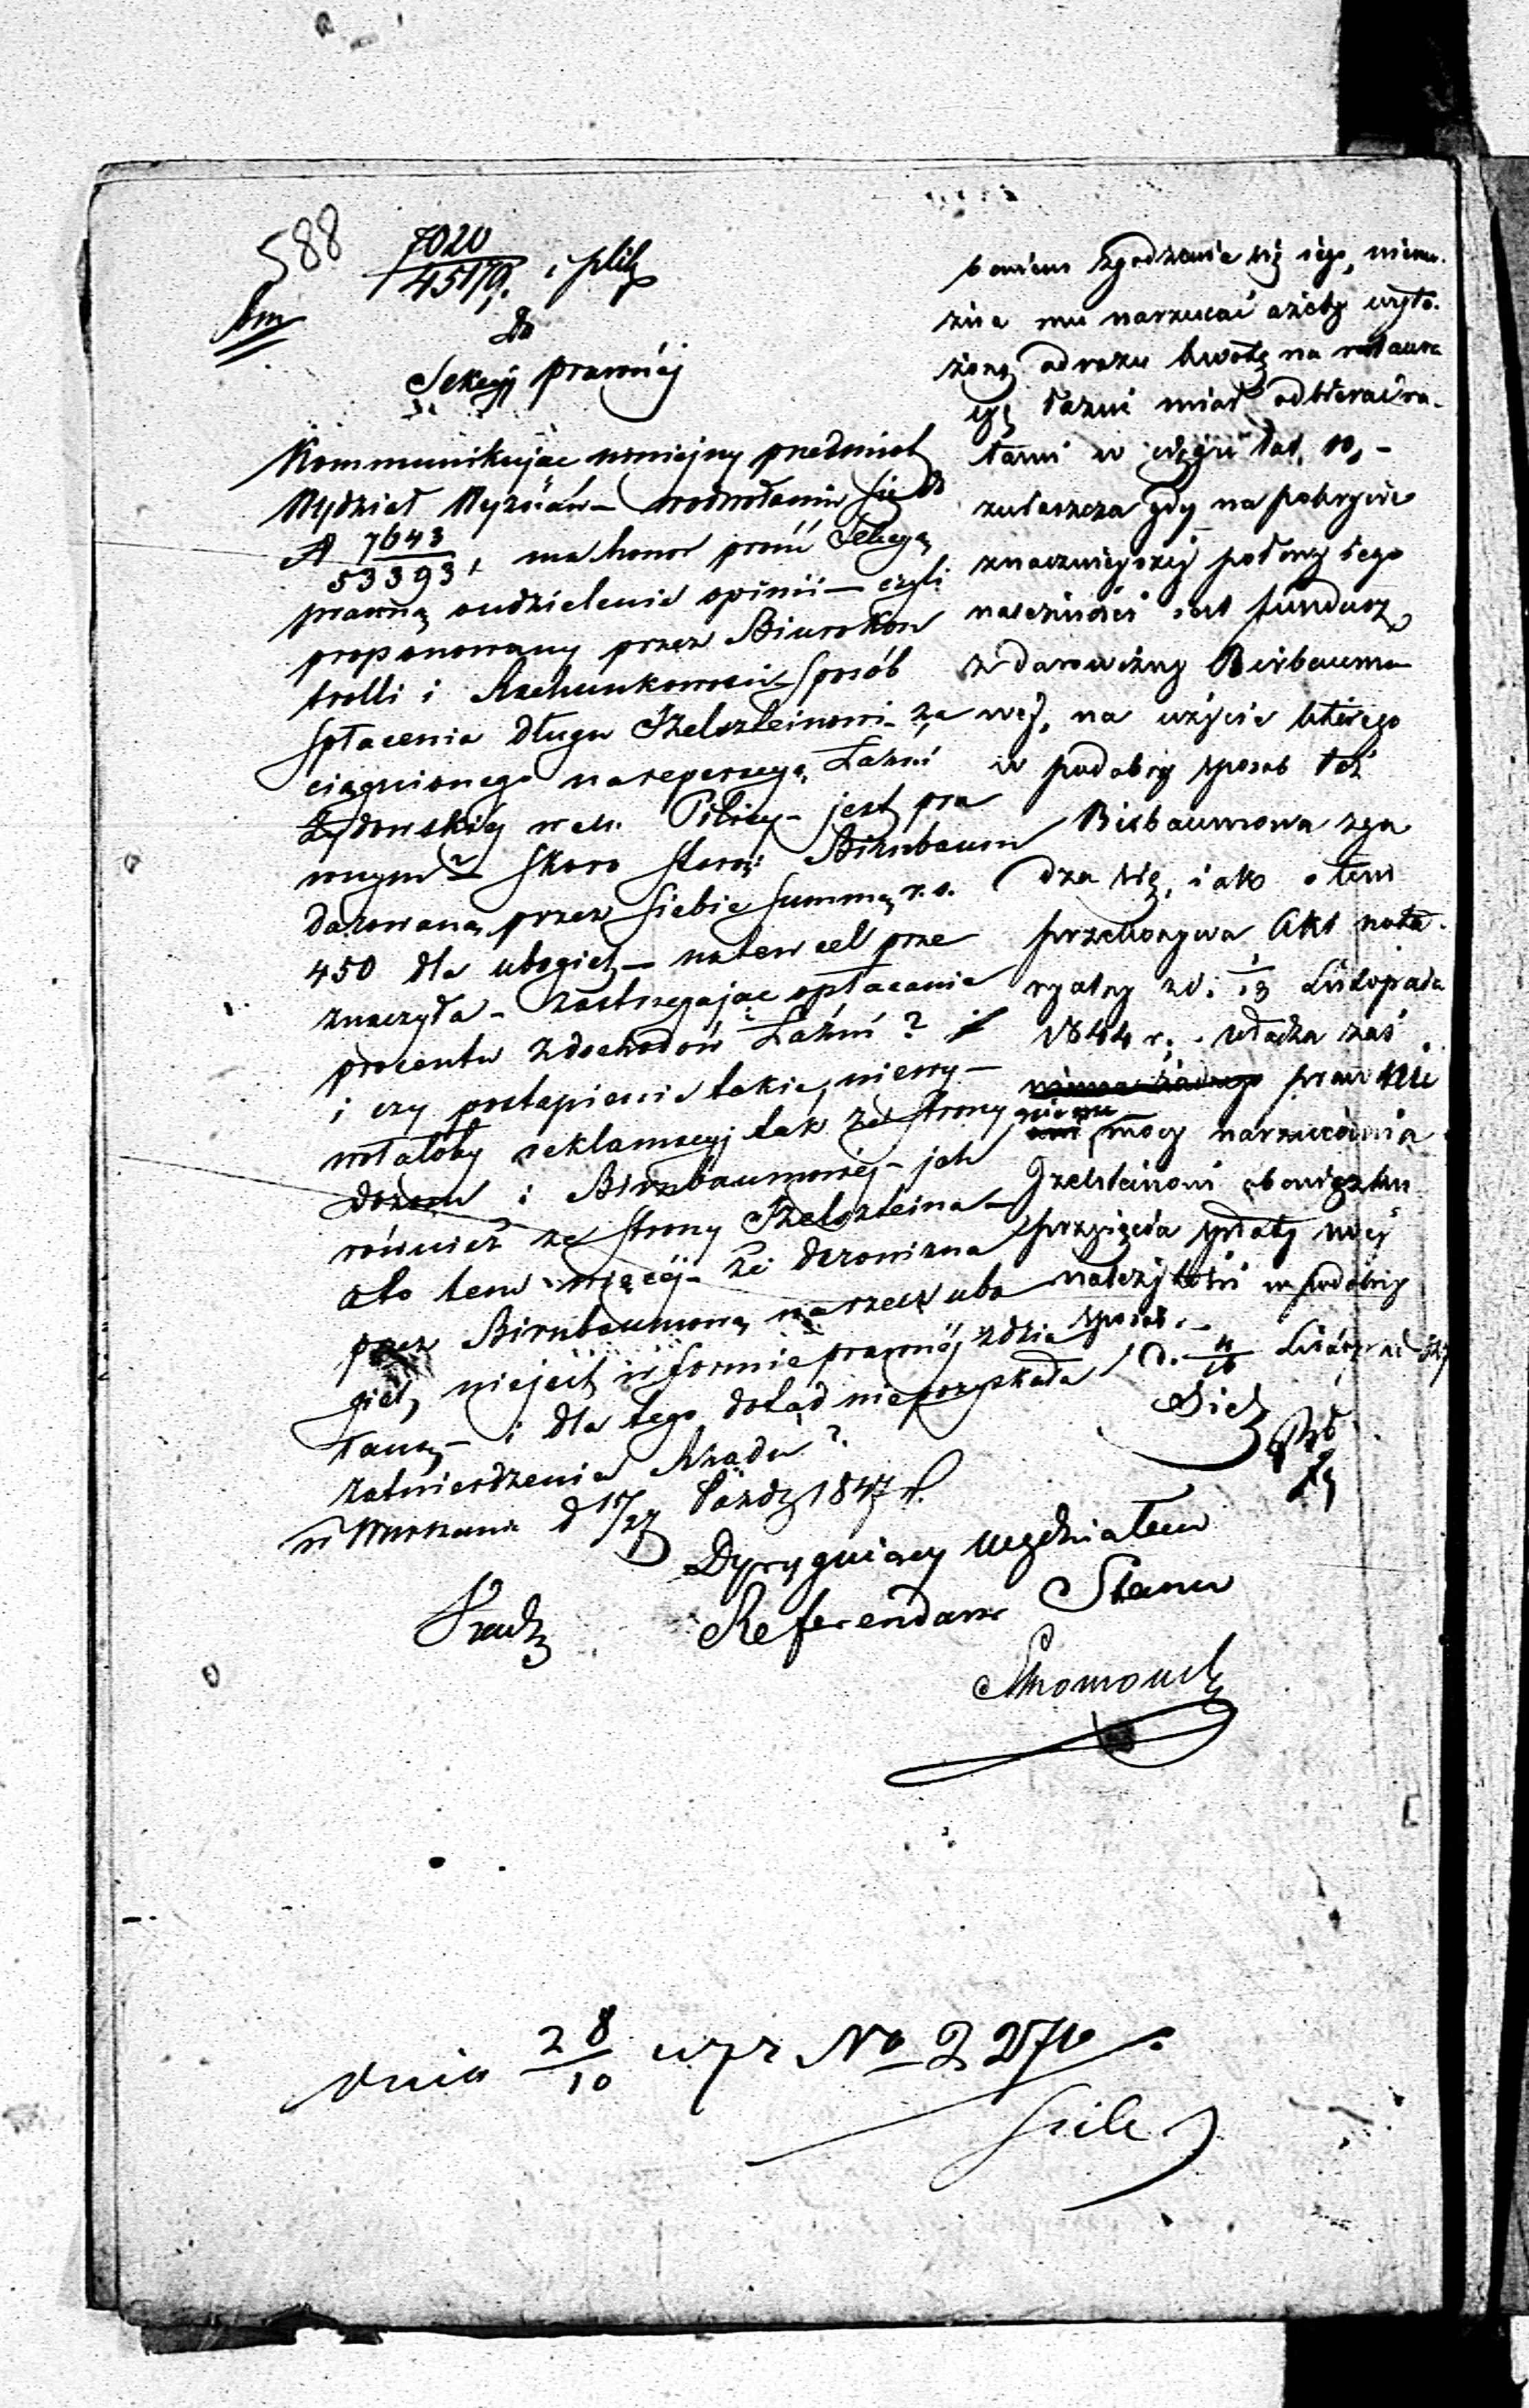 588
7020
45179. i plik
Do
Sekcyj prawnéj
Kommunikując niniejszy przedmiot
Wydział Wyznań – z odwołaniem się do
N 7643
53393, ma honor prosić Sekcyą
prawną o udzielenie opinii – czyli
proponowany przez Biuro Kon
trolli i Rachunkowości sposób
spłacenia długu Szelszteinowi za
ciągnionego na reperacyą Łaźni
Żydowskiéj w m. Pilicy – jest pra
wnym? skoro Staroz: Birnbaum
darowaną przez siebie summę r.s.
450 dla ubogich – na ten cel prze
znaczyła – zastrzegając opłacanie
procentu z dochodów Łaźni?
i czy postąpienie takie, niewy–
wołałoby reklamacyj tak ze strony
dozoru i Birnbaumowéj – jak
również ze strony Szelszteina –
a to tem więcéj – że darowizna
przez Birnbaumową na rzecz ubo
gich, niejest w formie prawnéj zdzia
łaną – i dla tego dotąd nie pozyskała
zatwierdzenia Rządu?
w Warszawie d 15/27 Paźdz 1847 r.
Dyrygujący Wydziałem
Referendarz Stanu
bowiem zgodzenia się jego, niemo-
żna mu narzucać ażeby wyło-
żoną od razu kwotę na restaura
cyę łaźni miał odbierać ra-
tami w ciągu lat 10, –
zwłaszcza gdy na pokrycie
znaczniejszéj połowy tego
należności jest fundusz
z darowizny Birbaumo
wéj, na użycie którego
w podobny sposob też
Birbaumowa zga
dza się, jak o tem
przekonywa Akt nota-
ryalny z d. 1/13 Listopada
1844 r. Władza zaś
prawnéj
mocy narzucania
Szelszteinowi obowiązku
przyjęcia spłaty swéj
należytości w podobny
sposób. –
d. 4/16 Listopad 847
dnia 28/10 wpr No 2276